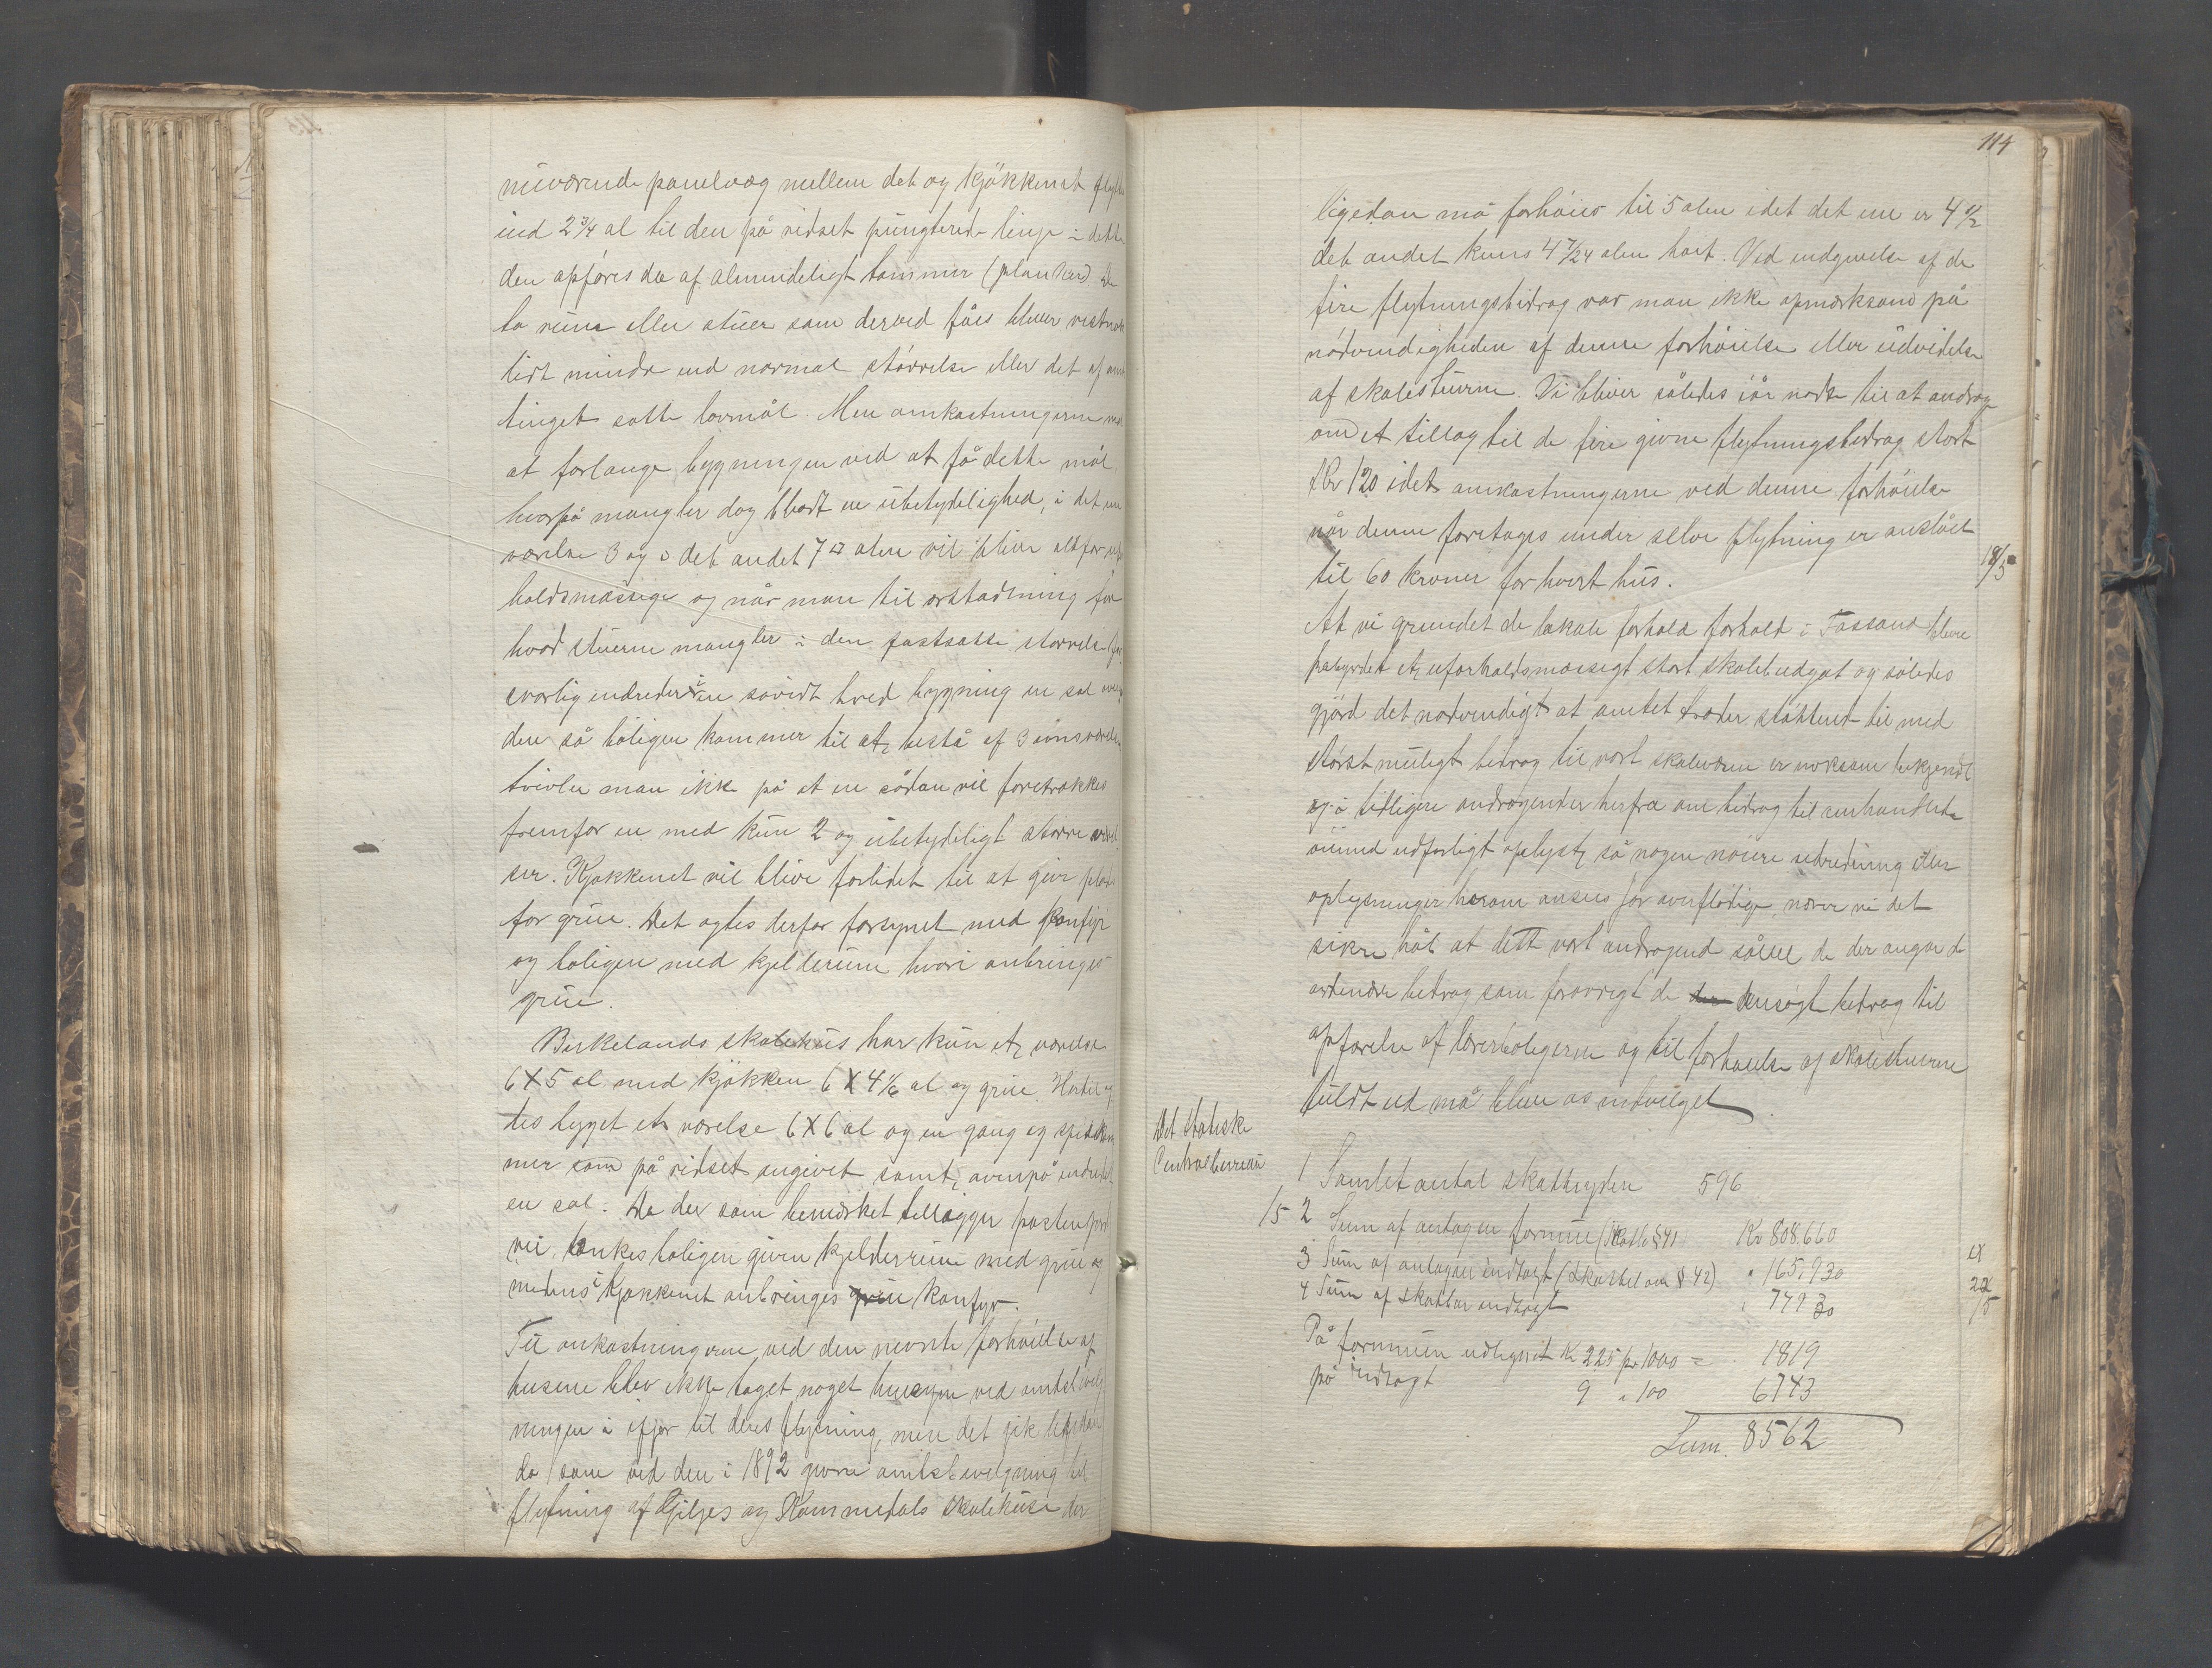 nuværende panelvæg mellem det og kjøkkenet flyttes
ind 2 3/4 al til den på ridset pungterede linje i dette
den opføres da af almindeligt tømmer (planker) De
to rum eller stuer som derved fåes bliver vistnok
lidt mindre end normal størrelse eller det af amts
tinget satte lovmål. Men omkostningerne med
at forlænge bygningen ved at få dette mål
hvorpå mangler dog blodt en ubetydelighed, i det ene
værelse 3 og i det andet 7 □ alen vil blive altfor ufor
holdsmæssige og når man til erstadtning for
hvad stuerne mangler i den fastsatte størrelse for
svarlig indreder i en såvidt bred bygning en sal oven
den så boligen kommer til at bestå af 3
tvivler man ikke på at en sådan vil foretrækkes
fremfor en med kun 2 og ubetydeligt større værel
ser. Kjøkkenet vil blive forlidet til at give plads
for grue. Det agtes derfor forsynet med konfyr
og boligen med kjelderrum hvori anbringes
grue.
Birkelands skolehus har kun et værelse
6 X 5 al med kjøkken 6 X 4 1/6 al og grue. Hertil ag
tes bygget et værelse 6 X 6 al og en gang og spiskam
mer som på ridset angivet samt ovenpå indredet
en sal. Da der som bemærket tillægger posten jord
vei, tænkes boligen given kjelderrum med grue og
medens i Kjøkkenet anbringes grue konfyr.
Til omkostningerne ved den nævnte forhøielse af
husene blev ikke taget noget hensyn ved amtsbevilg
ningen i ifjor til deres flytning, men det gik ligedan
da som ved den i 1892 givne amtsbevilgning til
flytning af Giljes og Kommedals skolehuse der
114
ligedan må forhøies til 5 alen idet det ene er 4 1/2
det andet kuns 4 7/24 alen høit. Ved indgivelse af de
fire flytningsbidrag var man ikke opmærksom på
nødvendigheden af denne forhøielse eller udvidelse
af skolestuerne. Vi bliver således iår nødte til at andrage
om et tillæg til de fire givne flytningsbidrag stort
Kr 120 idet omkostningerne ved denne forhøielse
når denne foretages under selve flytning er anslået
til 60 kroner for hvert hus.
18/5
At vi grundet de lokale forhold forhold i Fossand bleve
påbyrdet et uforholdsmæssigt stort skolebudget og således
gjörd det nødvendigt at amtet træder støttende til med
størst muligt bidrag til vort skolevæsen er noksom bekjendt
og i tidligere andragender herfra om bidrag til
øiemed udførligt oplyst, så nogen nøiere udredning eller
oplysninger herom ansees for overflødige, nærer vi det
sikre håb at dette vort andragende såvel de der angår de
ordenære bidrag som forøvrigt de ansøgte bidrag til
opførelse af lærerboligerne og til forhøielse af skolestuerne
fuldt ud må blive os indvilget
Det statiske
Centralbureau
15
1 Samlet antal skatteydere 596
2 Sum af antagen formue (Skattel § 41 Kr 808.660
3 Sum af antagen indtægt (Skattelovens § 42) " 165.930
4 Sum af skatbar indtægt " 74930
22/5
På formuen udlignet Kr 225 pr 1000 = 1819
på indtægt 9 " 100 6743
Sum 8562